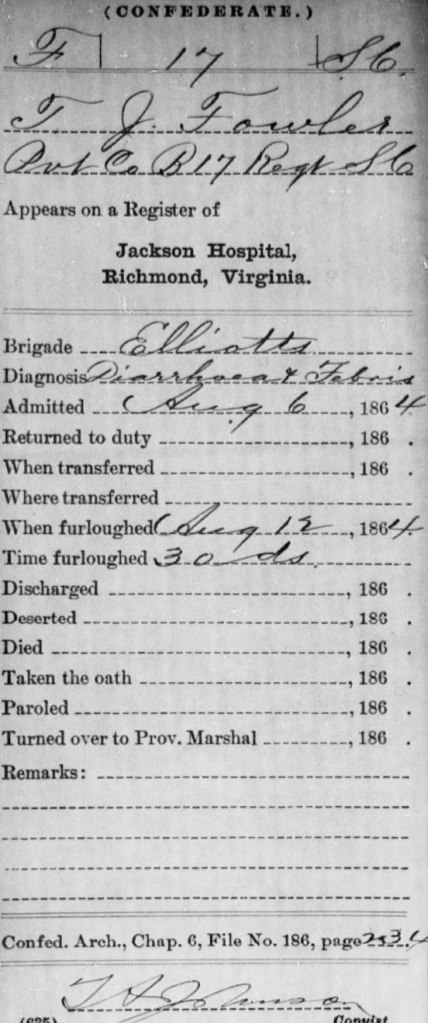 (CONFEDERATE.)
F 17 S.C.
T. J. Fowler
Pvt Co B 17 Regt S C
Appears on a Register of
Jackson Hospital,
Richmond, Virginia.
Brigade Elliotts
Diagnosis Diarrhoea & Febris
Admitted Aug 6, 1864
Returned to duty, 186 .
When transferred, 186 .
Where transferred
When furloughed Aug 12, 1864
Time furloughed 30 ds.
Discharged, 186 .
Deserted, 186 .
Died, 186 .
Taken the oath, 186 .
Paroled, 186 .
Turned over to Prov. Marshal, 186 .
Remarks:
Confed. Arch., Chap. 6, File No. 186, page
Johnson
(635) Copyist.